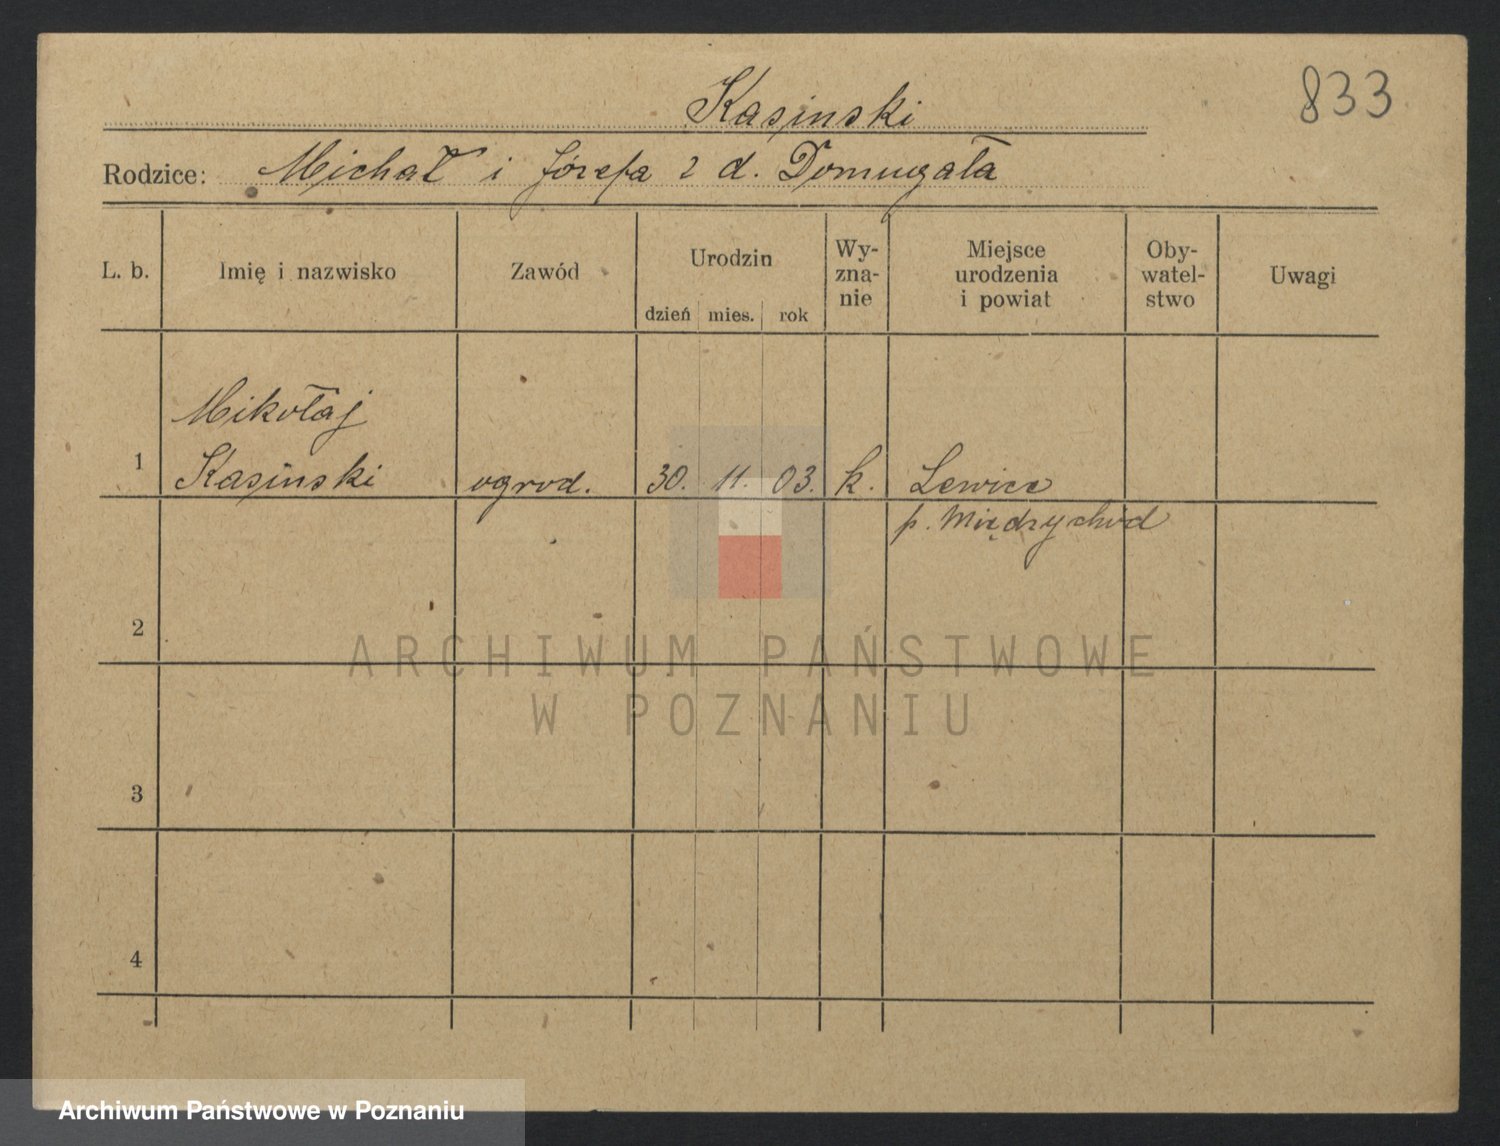 Kasinski
833
Rodzice: Michał i Józefa z d. Domugała
L. b.
Imię i nazwisko
Zawód
Urodzin
dzień mies. rok
Wy-
zna-
nie
Miejsce
urodzenia
i powiat
Oby-
watel-
stwo
Uwagi
Mikołaj
1 Kasinski ogrod. 30. 11. 03. k. Lewice
p. Międzychód
2
3
4
ARCHIWUM PAŃSTWOWE
W POZNANIU
Archiwum Państwowe w Poznaniu